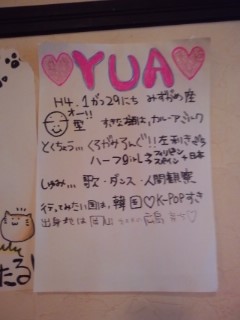 YUA
H4.1がつ29にち みずがめ座
オー!!
型
すきな酒は、カルーアミルク
とくちょう、、、くろがみろんぐ!!左利き
ハーフgirl
フィリピン
スペイン+日本
しゅみ、、、歌・ダンス・人間観察
行ってみたい国は、韓国♡K-POPすき
出身地は
広島
たる!